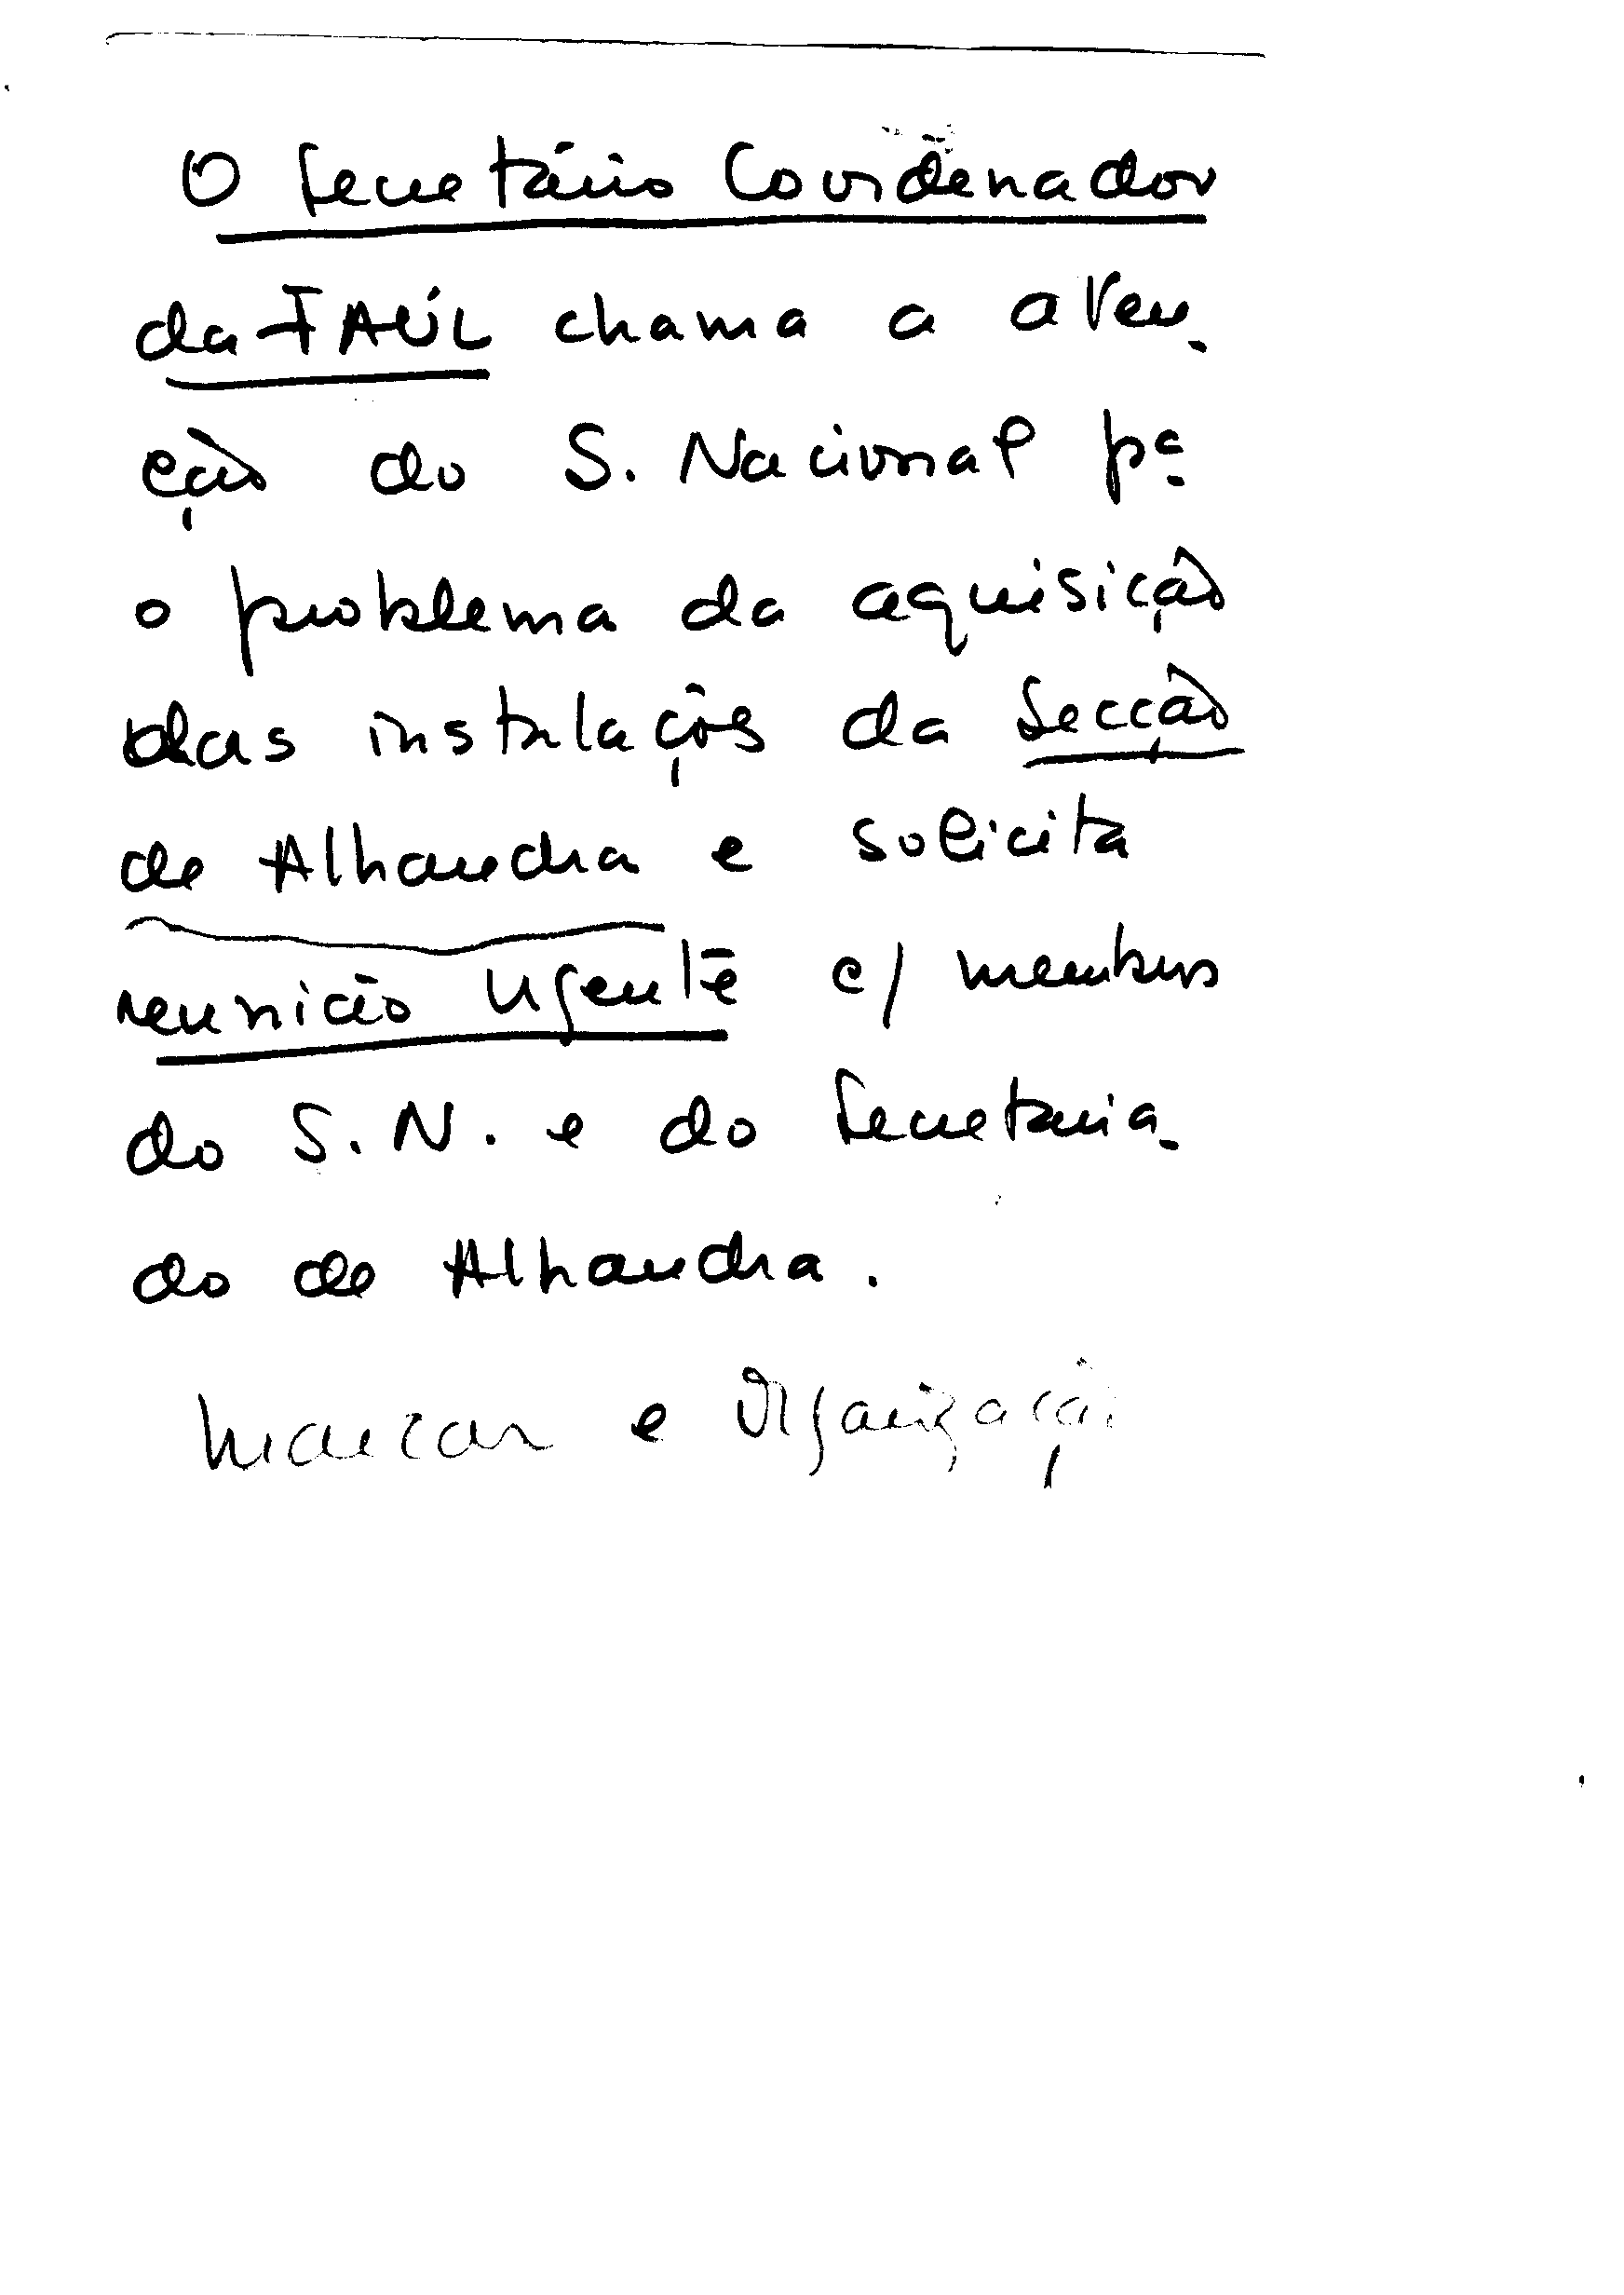 O Secretário Coordenador
da FAÚL chama a aten-
ção do S. Nacional pª
o problema da aquisição
das instalações da Secção
de Alhandra e solicita
reunião urgente c/ membros
do S. N. e do Secretaria-
do de Alhandra.
e Organização